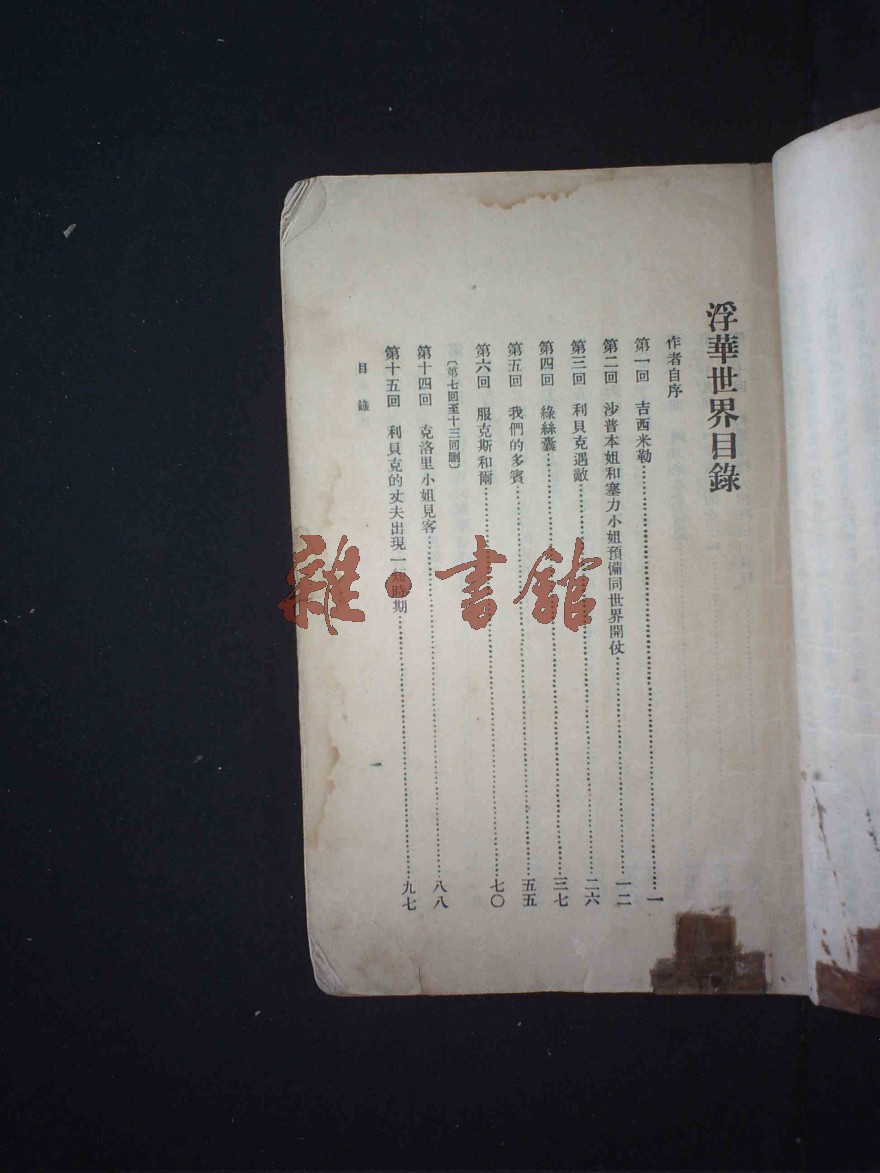 浮華世界目錄
作者自序
第一回 吉西米勒……一
第二回 沙普本姐和塞力小姐預備同世界開仗……一二
第三回 利貝克遇敵……二六
第四回 綠絲囊……三七
第五回 我們的多賓……五五
第六回 服克斯和爾……七〇
〔第七回至十三回刪〕
第十四回 克洛里小姐見客……八八
第十五回 利貝克的丈夫出現一短時期……九七
目錄
雜·書館